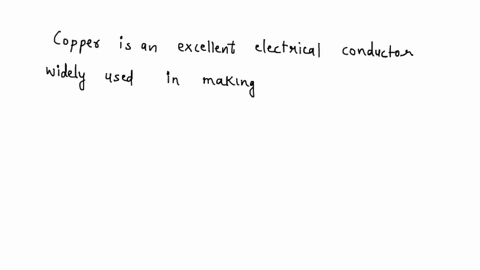 Copper is an excellent electrical conductor
widely used in making